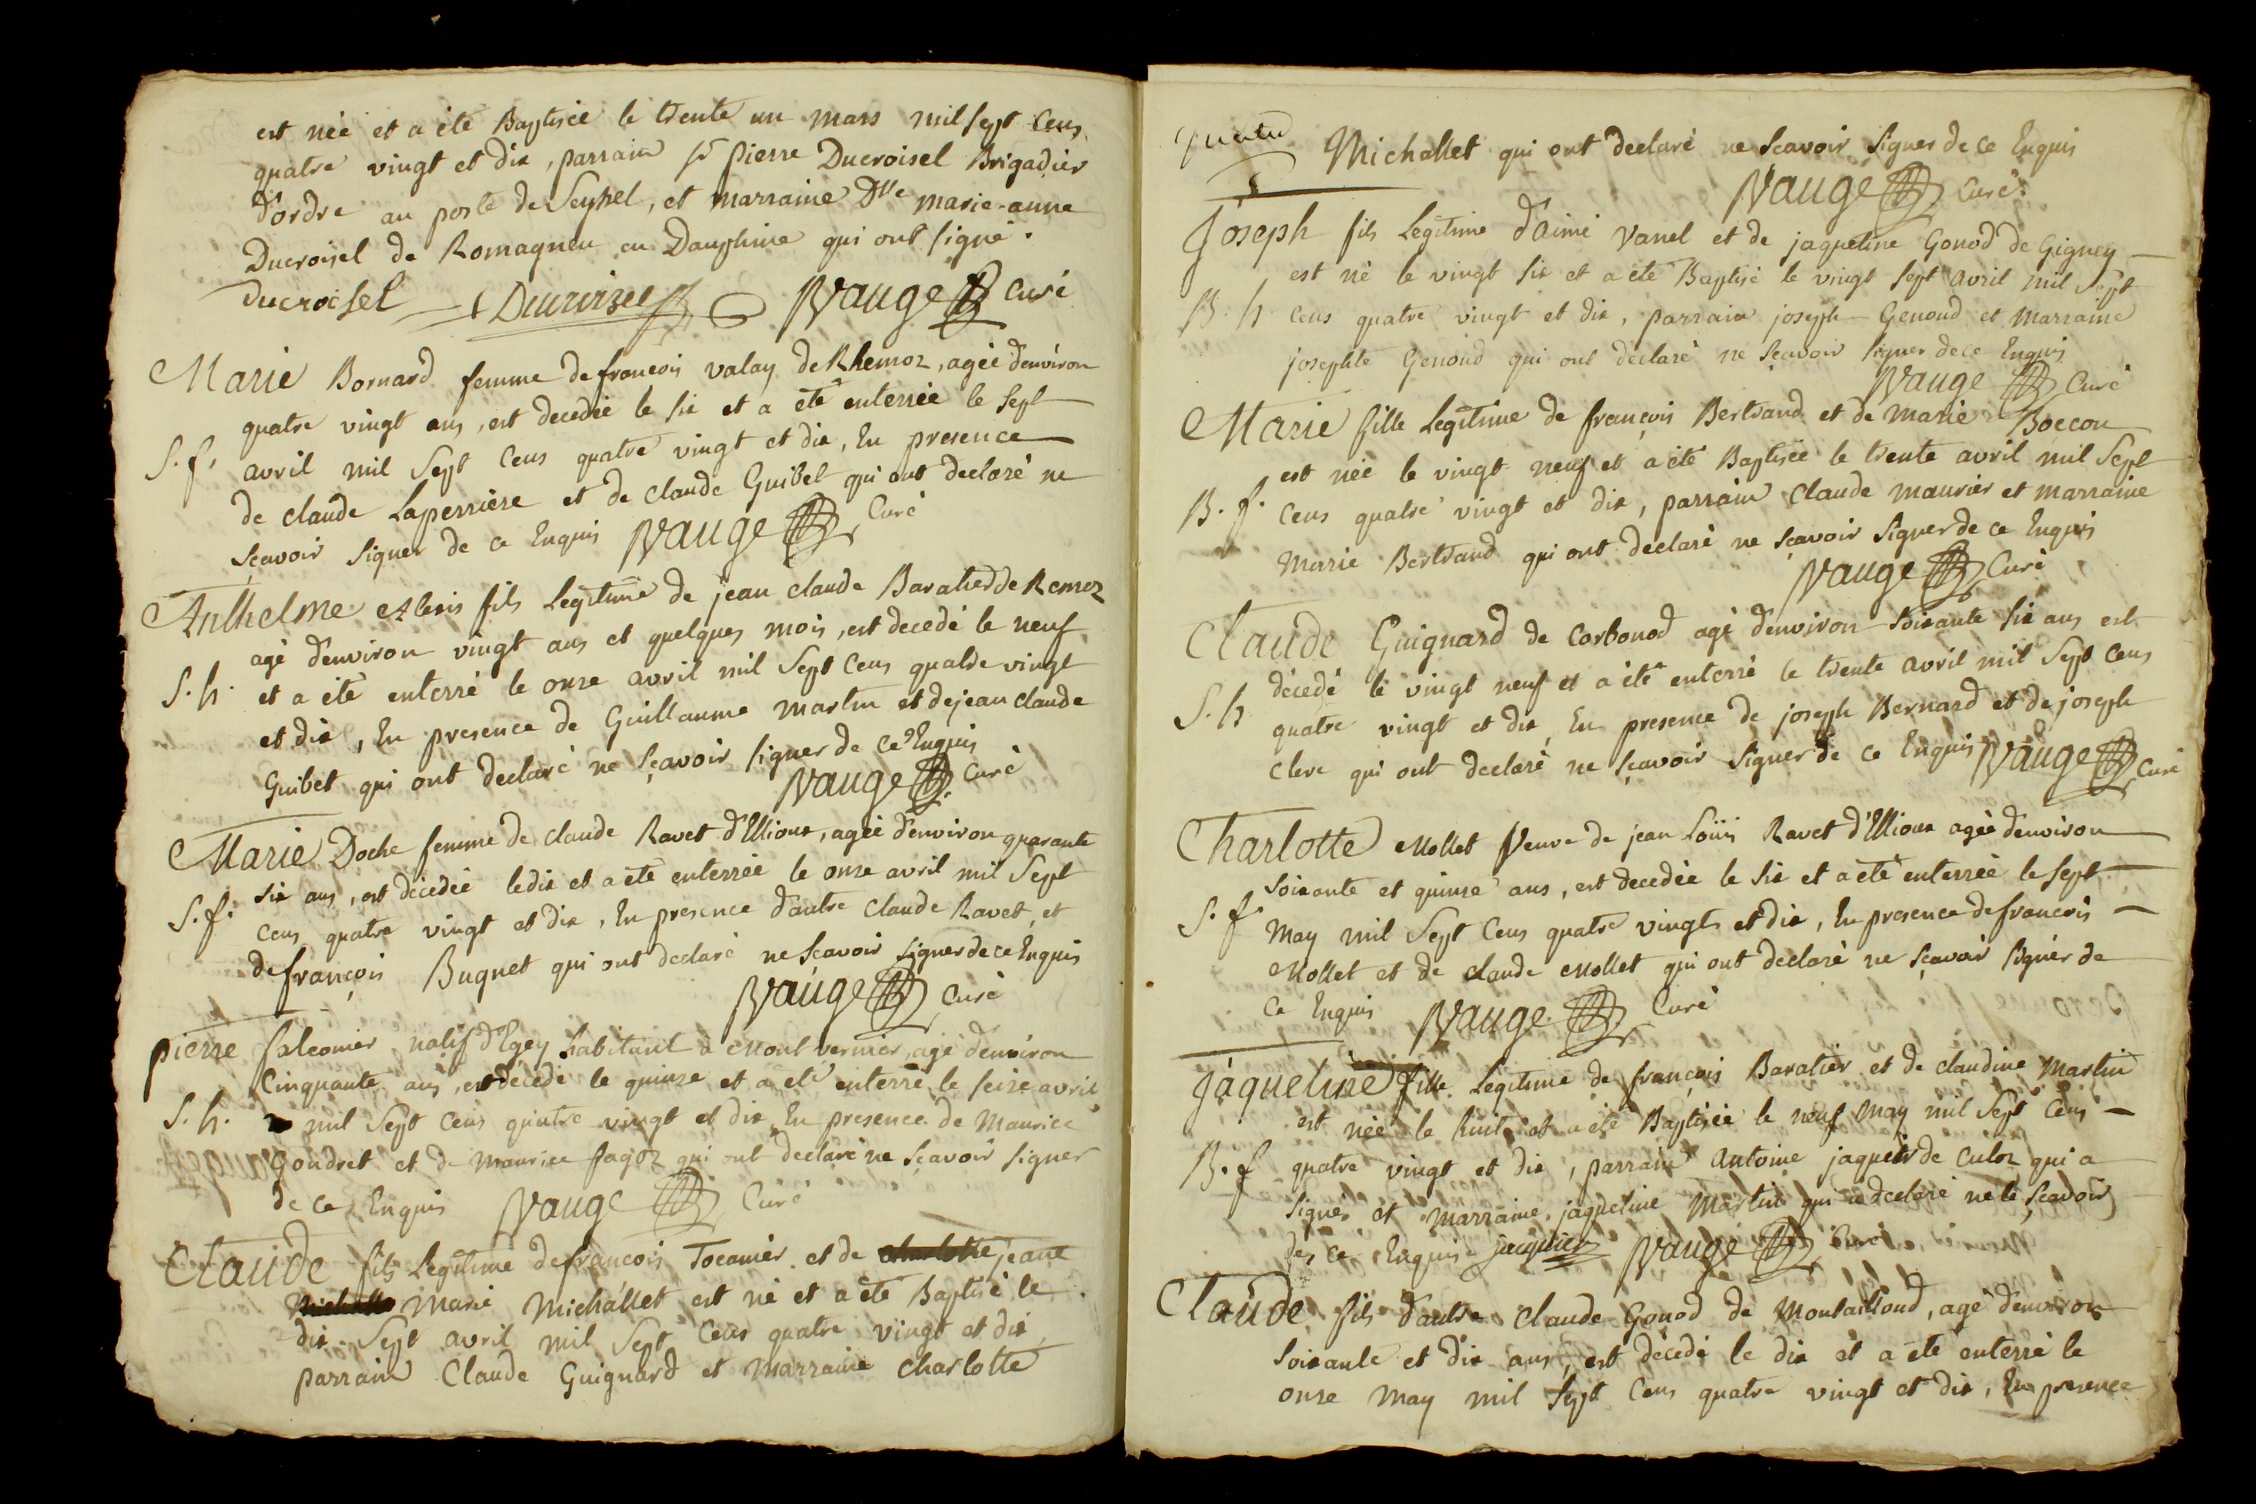 est née et a été Baptisée le trente un mars mil sept cens
quatre vingt et dix, parrain sr pierre Ducroisel Brigadier
d'ordre au poste de Seyssel, et marraine Dlle marie-anne
Ducroisel de Romagneu en Dauphine qui ont signé.
ducroisel Ducroisel Vauge Curé
Marie Bornard femme de francois valay de Rhemoz, agée d'environ
quatre vingt ans, est decedée le six et a été enterrée le sept
S. f. avril mil sept cens quatre vingt et dix, En presence
de claude Laperrière et de claude Guibet qui ont declaré ne
sçavoir signer de ce Enquis Vauge Curé
Anthelme Alexis fils Legitime de jean claude Baratier de Remoz
agé d'environ vingt ans et quelques mois, est decedé le neuf
S. h. et a été enterré le onze avril mil sept cens quatre vingt
et dix, En presence de Guillaume martin et de jean claude
Guibet qui ont declaré ne sçavoir signer de ce Enquis
Vauge Curé
Marie Doche femme de claude Ravet d'Ilioux, agée d'environ quarante
six ans, est décedée le dix et a été enterrée le onze avril mil sept
S. f. cens quatre vingt et dix, En presence d'autre claude Ravet, et
de françois Bugnet qui ont declaré ne sçavoir signer de ce Enquis
Vauge Curé
pierre falconier natif d'Egey habitant a Mont vernier, agé d'environ
Cinquante ans, est décedé le quinze et a eté enterré le seize avril
S. h. mil sept cens quatre vingt et dix, En presence de Maurice
Goudret et de maurice fagoz qui ont declaré ne sçavoir signer
de ce Enquis Vauge Curé
Claude fils Legitime de francois Tocanier et de charlotte jeane
Michallet Marie Michállet est né et a été Baptisé le
dix sept avril mil sept cens quatre vingt et dix
parrain Claude Guignard et marraine charlotte
Michallet qui ont declaré ne sçavoir signer de ce Enquis
Vauge Curé
Joseph fils Legitime d'aimé Vanel et de jaqueline Gonod de Gigney
est né le vingt six et a été Baptisé le vingt sept avril mil sept
B. h. cens quatre vingt et dix, parrain joseph Genoud et marraine
josephte Genoud qui ont declaré ne sçavoir signer de ce Enquis
Vauge Curé
Marie fille Legitime de françois Bertrand et de marie Boccon
est née le vingt neuf et a été Baptisée le trente avril mil sept
B. f. cens quatre vingt et dix, parrain claude maurier et marraine
Marie Bertrand qui ont declaré ne sçavoir signer de ce Enquis
Vauge Curé
Claude Guignard de Corbonod agé d'environ soixante six ans est
décedé le vingt neuf et a été enterré le trente avril mil sept cens
S. h quatre vingt et dix, En presence de joseph Bernard et de joseph
clerc qui ont declaré ne sçavoir signer de ce Enquis Vauge Curé
Charlotte Mollet Veuve de jean Loüis Ravet d'Ilioux agée d'environ
soixante et quinze ans, est decedée le six et a été enterrée le sept
S. f. May mil sept cens quatre vingts et dix, En presence de francois
Mollet et de claude Mollet qui ont declaré ne sçavoir signer de
ce Enquis Vauge Curé
Jaqueline fille Legitime de françois Baratier et de claudine Martin
est née le huit et a été Baptisée le neuf May mil sept cens
B. f quatre vingt et dix, parrain antoine jaquier de culoz qui a
signé et marraine jaqueline Martin qui a declaré ne le sçavoir
de ce Enquis jacquier Vauge Curé
Claude fils d'autre claude Gonod de Montaillond, agé d'environ
soixante et dix ans, est décedé le dix et a été enterré le
onze May mil sept cens quatre vingt et dix, En presence